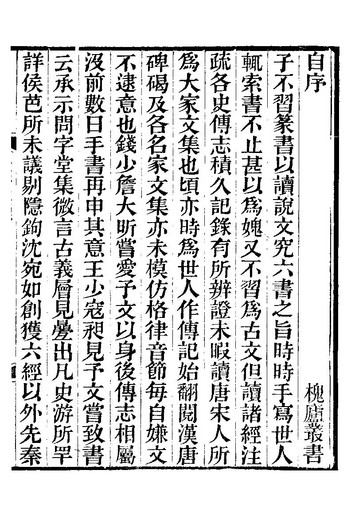 自序
槐廬叢書
予不習篆書以讀說文究六書之旨時時手寫世人
輒索書不止甚以爲媿又不習爲古文但讀諸經注
疏各史傳志積久記錄有所辨證未暇讀唐宋人所
爲大家文集也頃亦時爲世人作傳記始翻閱漢唐
碑碣及各名家文集亦未模仿格律音節每自嫌文
不逮意也錢少詹大昕嘗愛予文以身後傳志相屬
沒前數日手書再申其意王少寇昶見予文嘗致書
云承示問字堂集微言古義層見疊出凡史游所罕
詳侯芭所未議剔隱鉤沈宛如創獲六經以外先秦